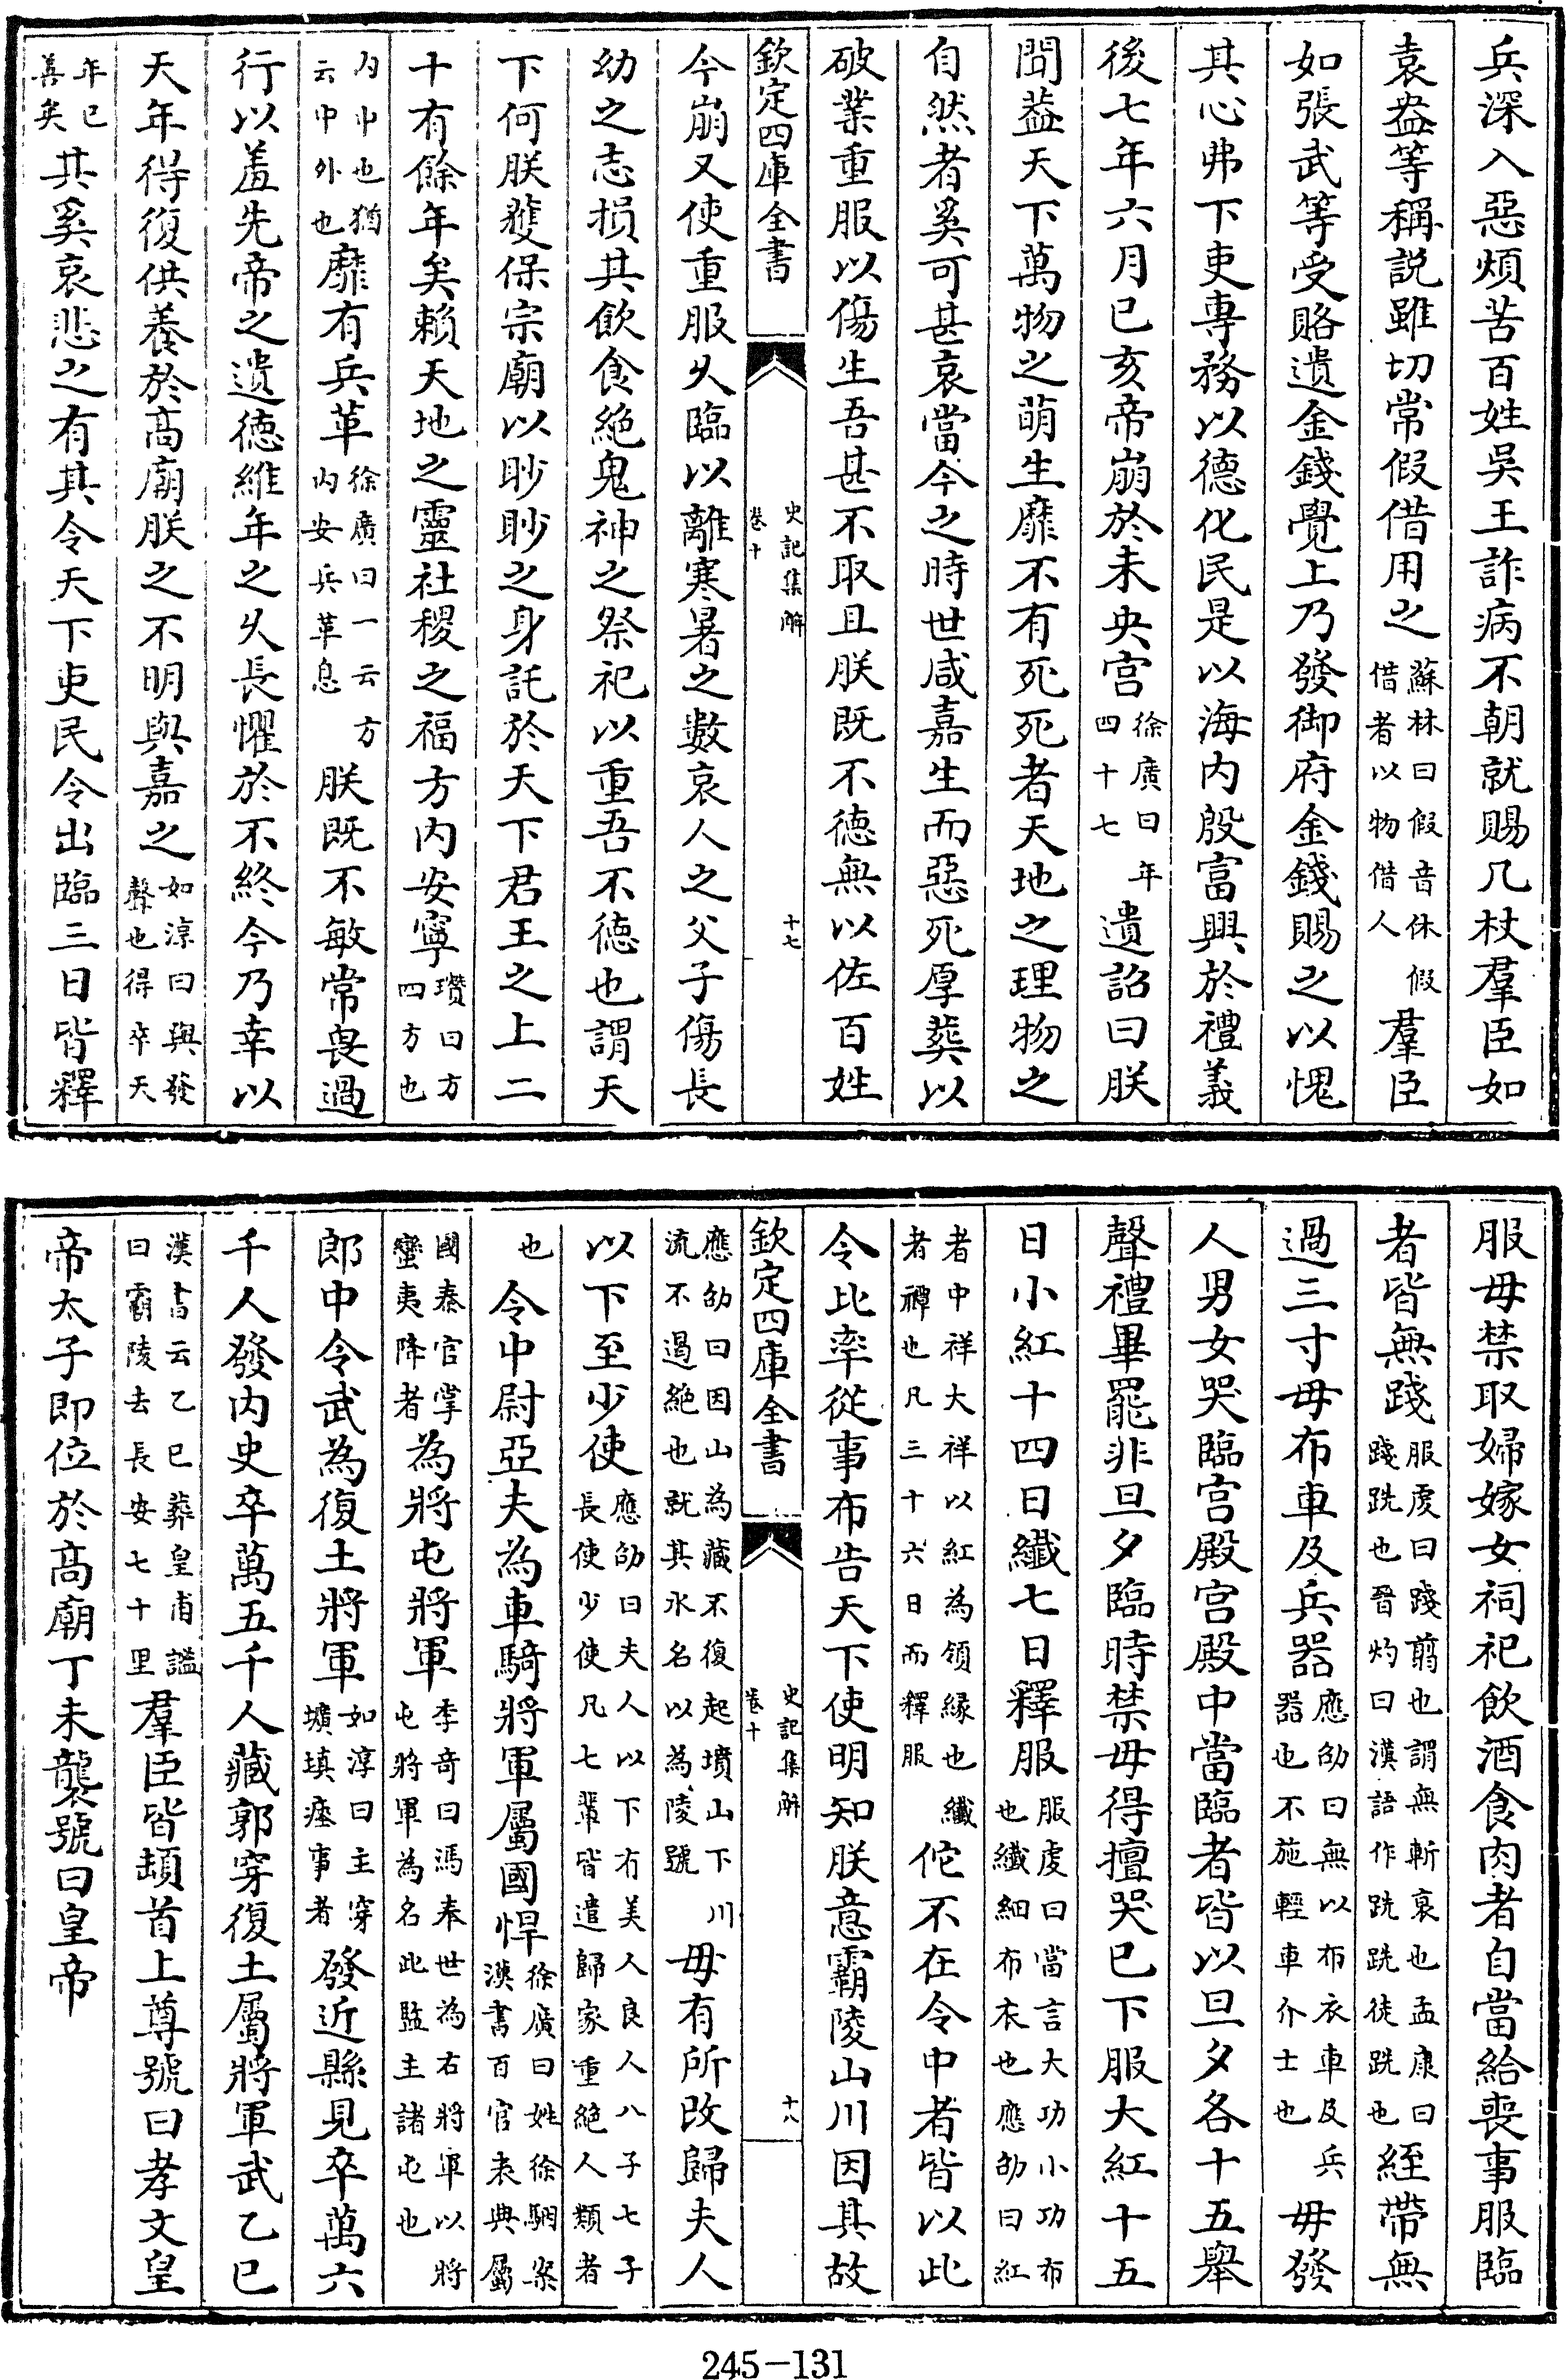 兵深入惡煩苦百姓吳王詐病不朝就賜几杖羣臣如
袁盎等稱説雖切常假借用之蘇林曰假音休假借者以物借人羣臣
如張武等受賂遺金錢覺上乃發御府金錢賜之以愧
其心弗下吏專務以德化民是以海内殷富興於禮義
後七年六月已亥帝崩於未央宫徐廣曰年四十七遺詔曰朕
聞葢天下萬物之萌生靡不有死死者天地之理物之
自然者奚可甚哀當今之時世咸嘉生而惡死厚葬以
破業重服以傷生吾甚不取且朕既不德無以佐百姓
欽定四庫全書 史記集解 卷十 十七
今崩又使重服久臨以離寒暑之數哀人之父子傷長
幼之志損其飲食絶鬼神之祭祀以重吾不德也謂天
下何朕獲保宗廟以眇眇之身託於天下君王之上二
十有餘年矣賴天地之靈社稷之福方内安寧瓚曰方四方也
内中也猶云中外也靡有兵革徐廣曰一云方内安兵革息朕既不敏常畏過
行以羞先帝之遺德維年之久長懼於不終今乃幸以
天年得復供養於高廟朕之不明與嘉之如淳曰與發聲也得卒天
年已善矣其奚哀悲之有其令天下吏民令出臨三日皆釋
服毋禁取婦嫁女祠祀飲酒食肉者自當給喪事服臨
者皆無踐服虔曰踐翦也謂無斬衰也孟康曰踐跣也晉灼曰漢語作跣跣徒跣也絰帶無
過三寸毋布車及兵器應劭曰無以布衣車及兵器也不施輕車介士也毋發
人男女哭臨宫殿宫殿中當臨者皆以旦夕各十五舉
聲禮畢罷非旦夕臨時禁毋得擅哭已下服大紅十五
日小紅十四日纖七日釋服服虔曰當言大功小功布也纖細布衣也應劭曰紅
者中祥大祥以紅為領緣也纖者禫也凡三十六日而釋服佗不在令中者皆以此
令比率從事布告天下使明知朕意霸陵山川因其故
欽定四庫全書 史記集解 卷十 十八
應劭曰因山為藏不復起墳山下川流不遏絶也就其水名以為陵號毋有所改歸夫人
以下至少使應劭曰夫人以下有美人良人八子七子長使少使凡七輩皆遣歸家重絶人類者
也令中尉亞夫為車騎將軍屬國悍徐廣曰姓徐駰案漢書百官表典屬
國秦官掌蠻夷降者為將屯將軍李奇曰馮奉世為右將軍以將屯將軍為名此監主諸屯也
郎中令武為復土將軍如淳曰主穿壙填瘞事者發近縣見卒萬六
千人發内史卒萬五千人藏郭穿復土屬將軍武乙巳
漢書云乙巳葬皇甫謐曰霸陵去長安七十里羣臣皆頓首上尊號曰孝文皇
帝太子即位於高廟丁未襲號曰皇帝
245-131